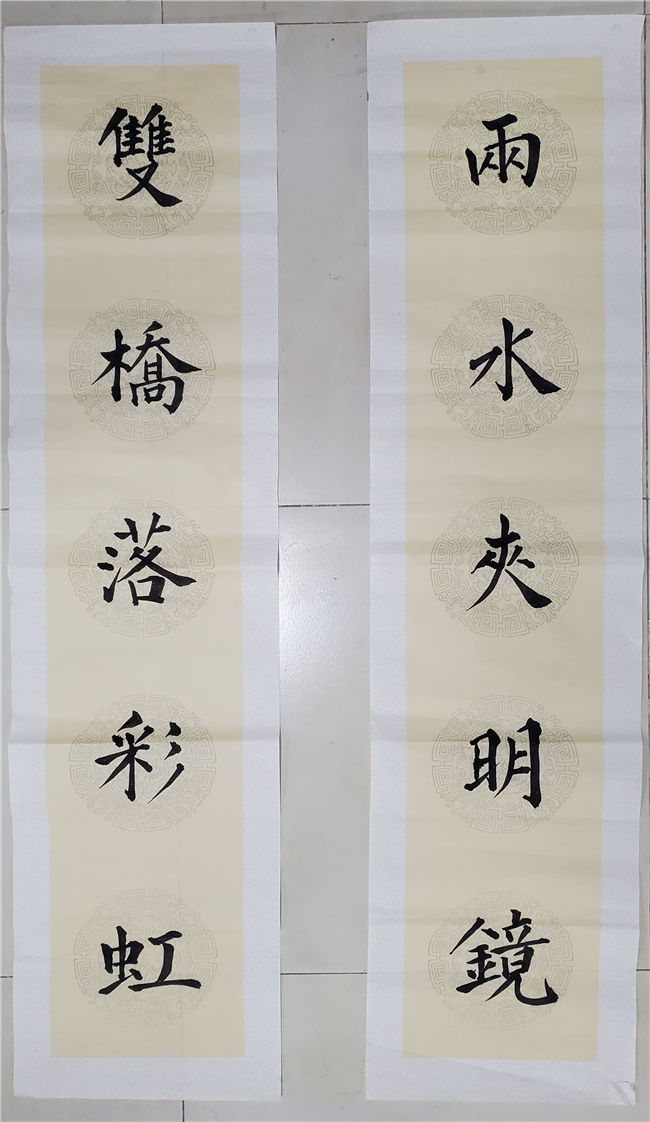 兩水夾明鏡
雙橋落彩虹